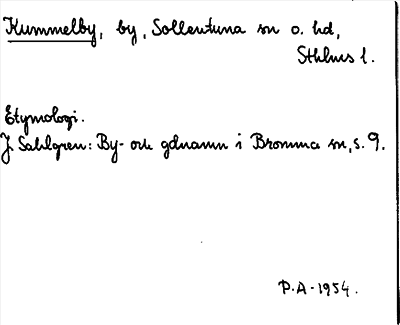 Kummelby, by, Sollentuna sn o. hd,
Sthlms l.
Etymologi.
J. Sahlgren: By- och gdnamn i Bromma sn, s. 9.
P.A - 1954.